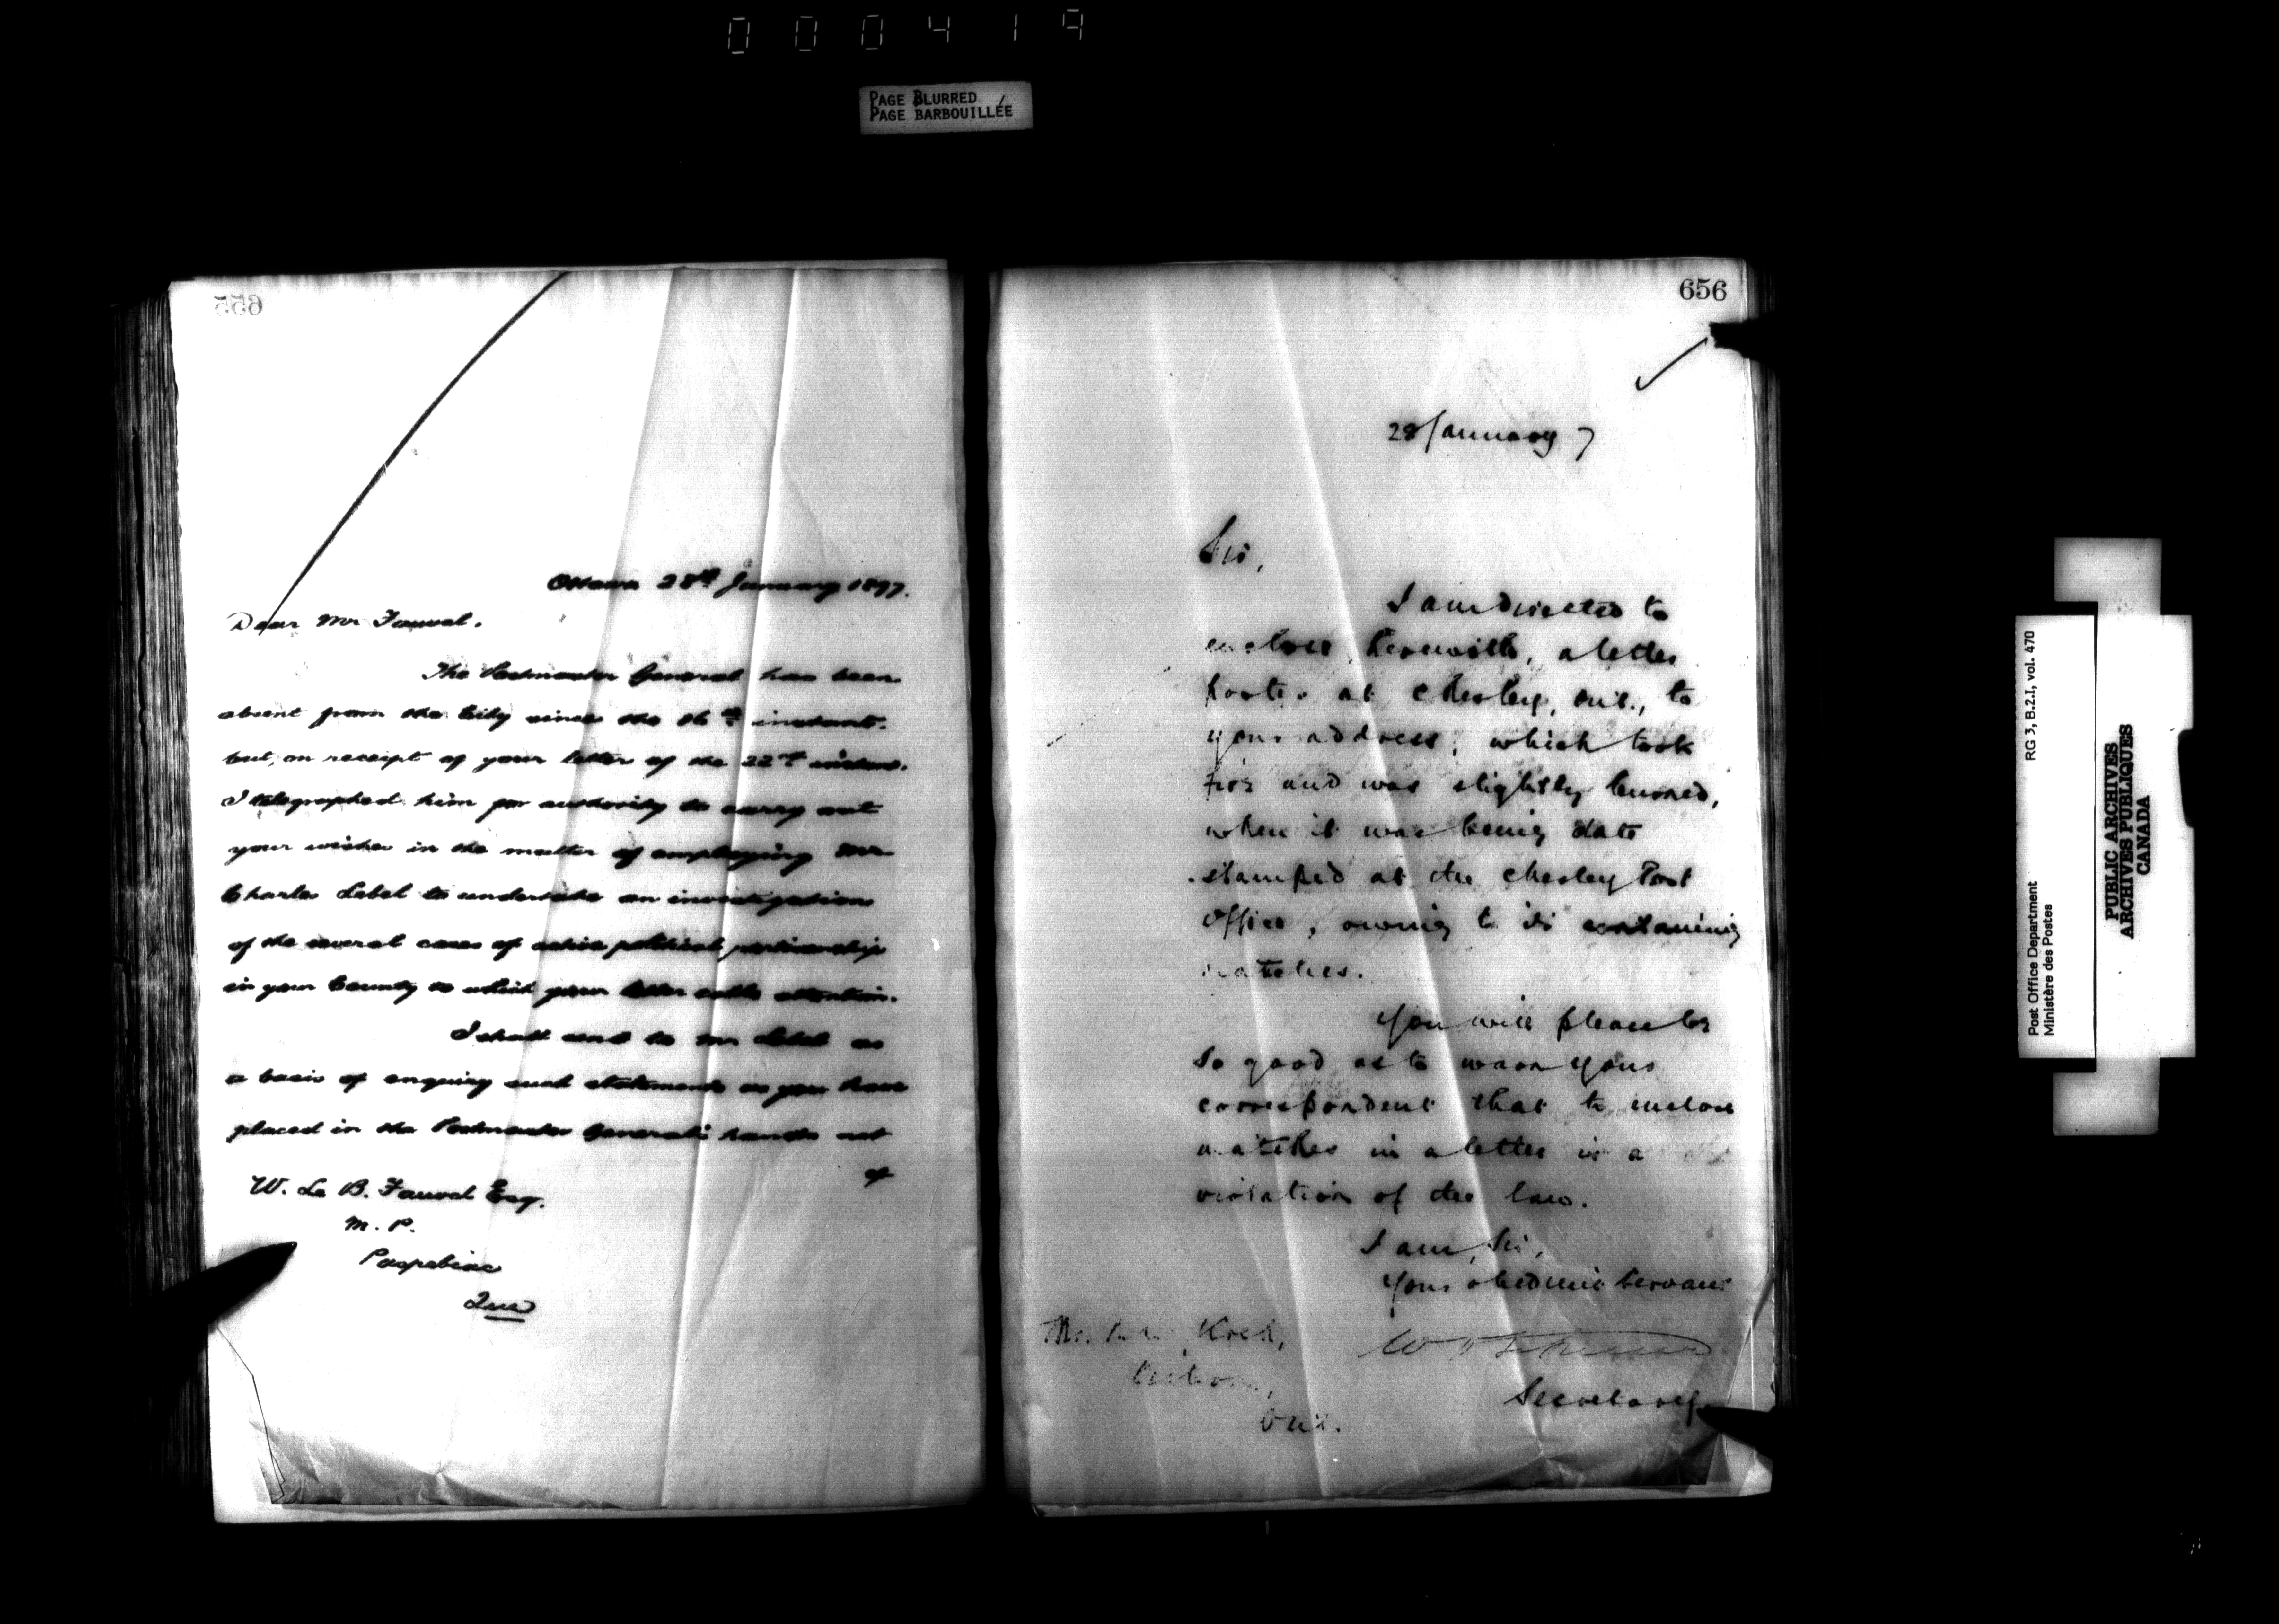 000419
PAGE BLURRED
PAGE BARBOUILLÉE
655
Ottawa 28th January 1897.
Dear Mr Fauvel.
The Postmaster General has been
absent from the City since the 16th instant.
but, on receipt of your letter of the 22nd instant.
I telegraphed him for authority to carry out
your wishes in the matter of employing Mr
Charles Lebel to undertake an investigation
of the several cases of active political partisanship
in your County to which your letter calls attention.
I shall send to Mr Lebel as
a basis of enquiry such statements as you have
placed in the Postmaster General's hands not
of
W. Le B. Fauvel Esq.
M. P.
Paspebiac
Que
656
28 January 7
Sir,
I am directed to
enclose herewith, a letter
posted at Chesley, Ont., to
your address, which took
fire and was slightly burned,
when it was being date
stamped at the Chesley Post
Office, owing to its containing
matches.
You will please be
so good as to warn your
correspondent that to inclose
matches in a letter is a
violation of the law.
I am, Sir,
Your obedient Servant
Secretary
Mr. Koch,
Ont.
Post Office Department
Ministère des Postes
RG 3, B.2.I, vol. 470
PUBLIC ARCHIVES
ARCHIVES PUBLIQUES
CANADA